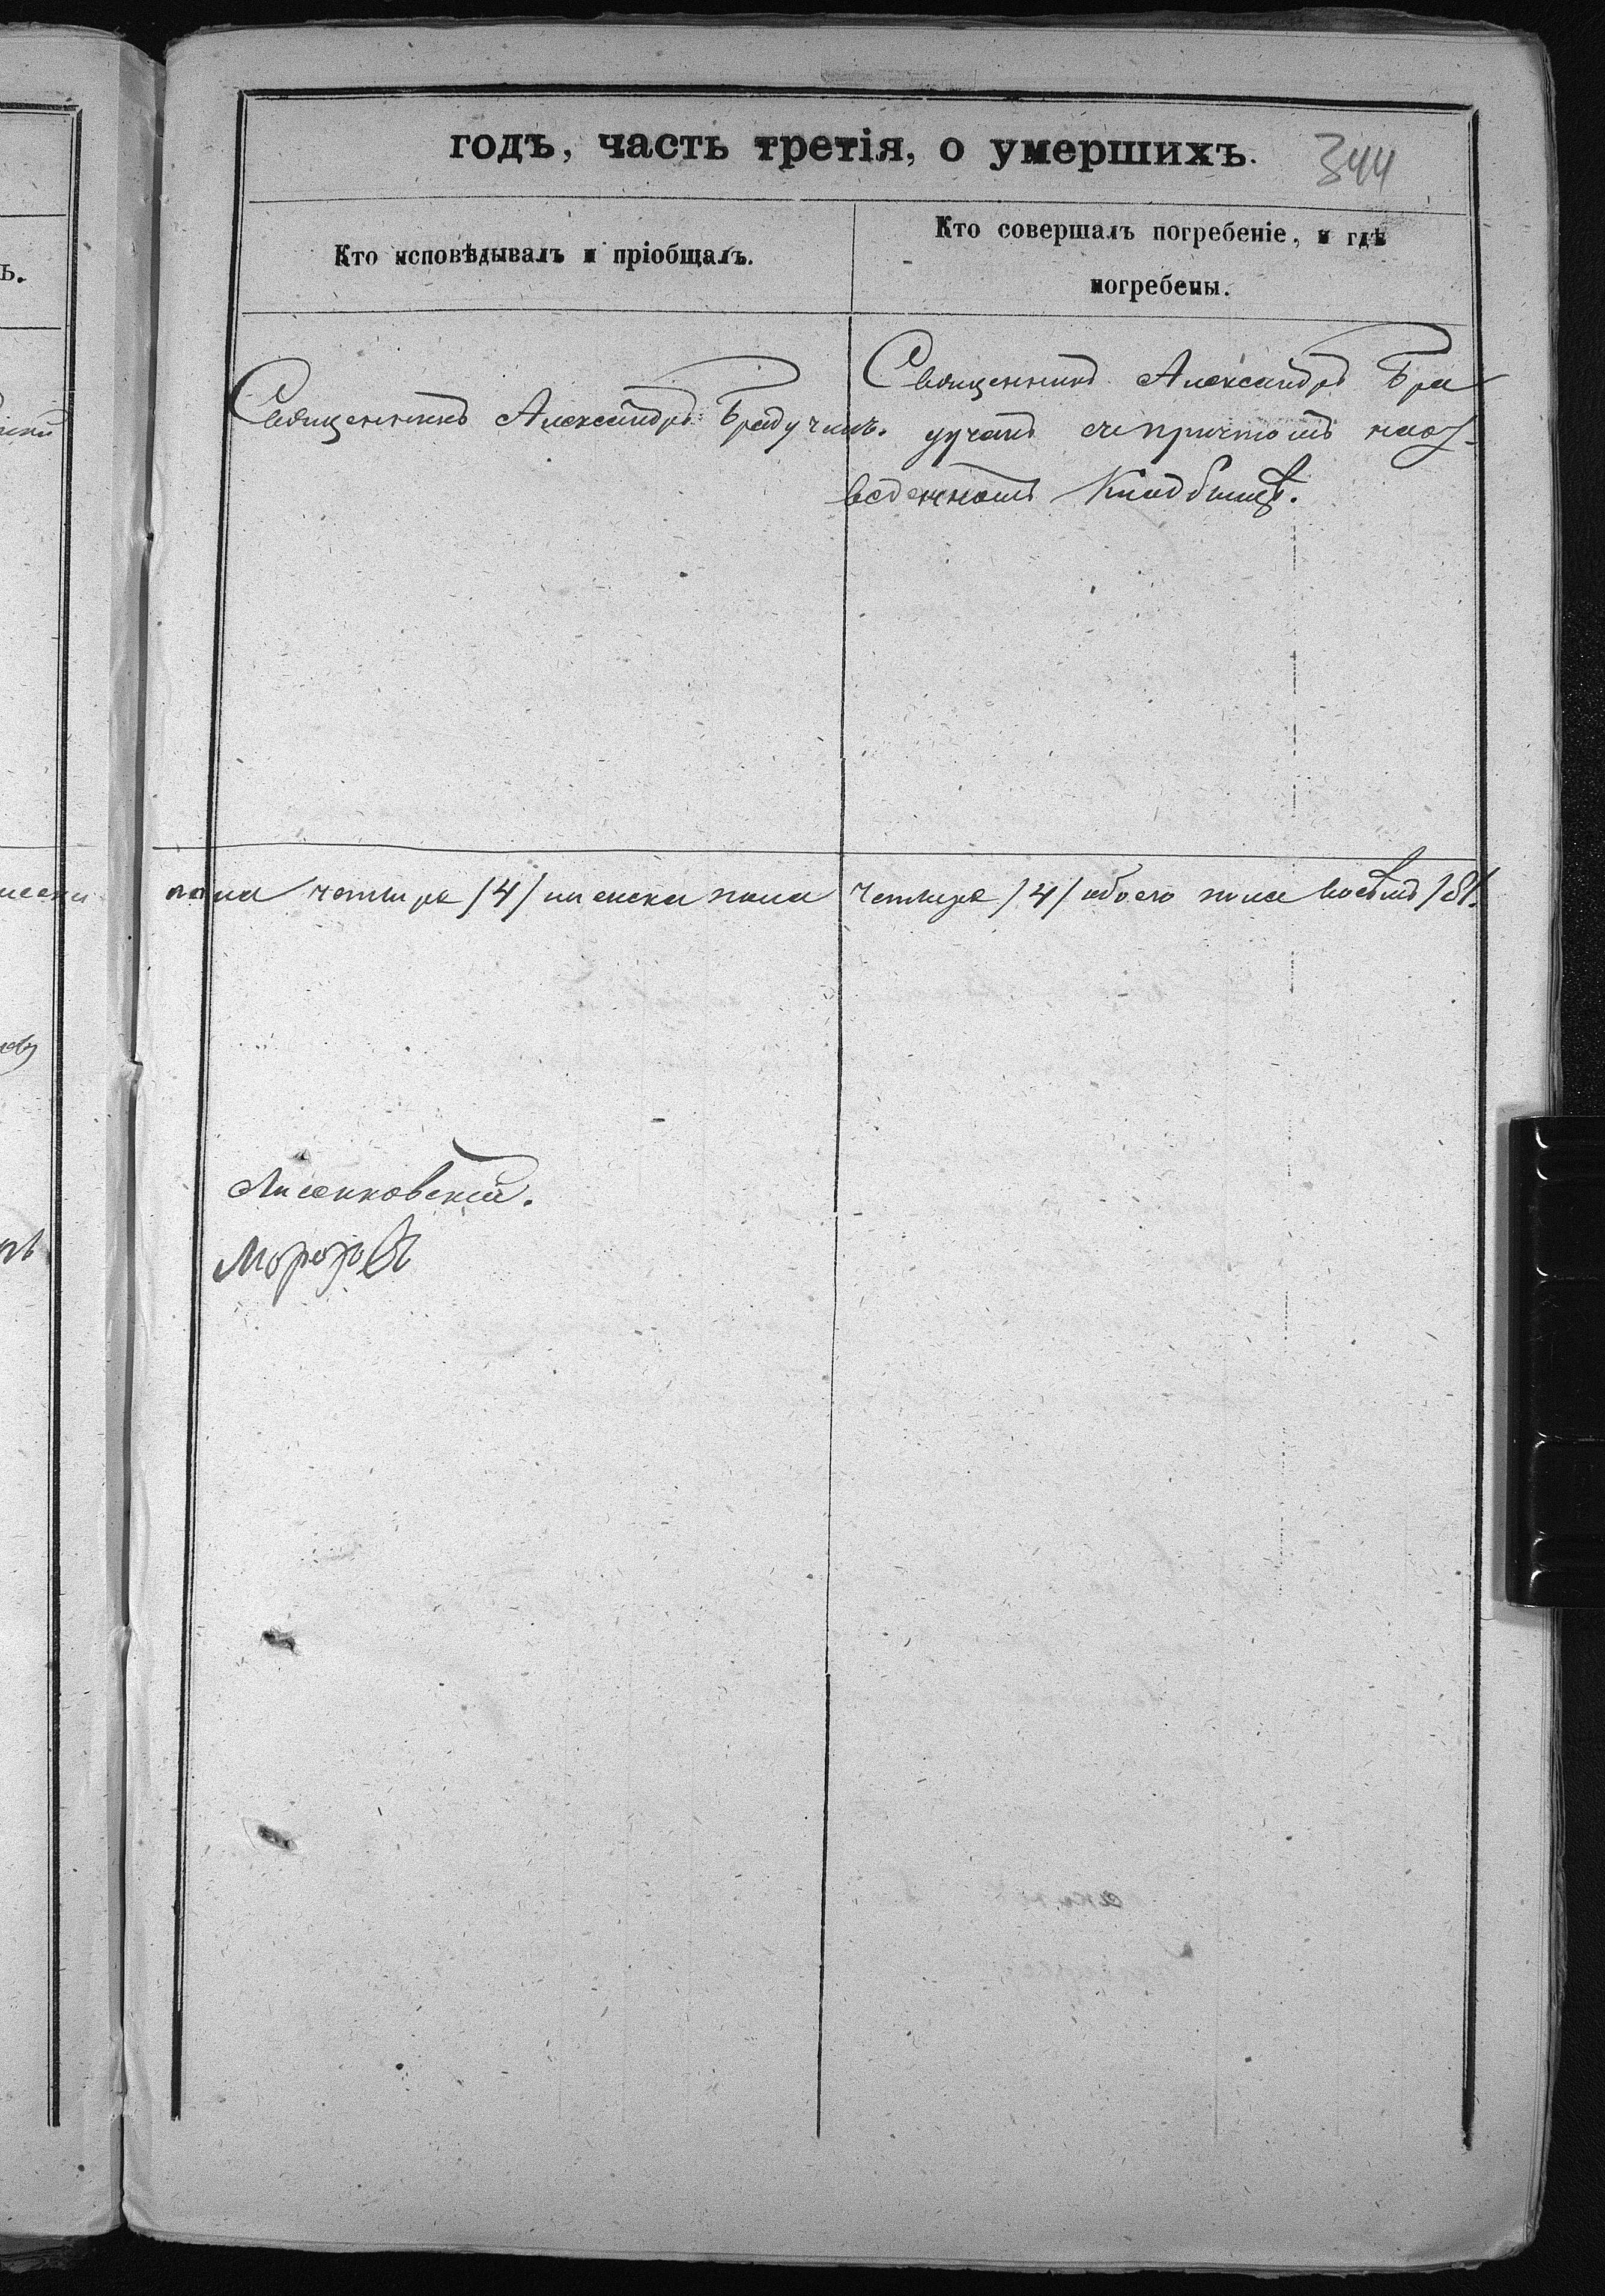 годъ, часть третія, о умершихъ.
344
Кто исповѣдывалъ и пріобщалъ.
Кто совершалъ погребеніе, и гдѣ
погребены.
Священникъ Александръ Брадучанъ.
Священникъ Александръ Бра
дучанъ съ причтомъ на от-
веденномъ Кладбищѣ.
пола четыре /4/ женска пола четыре /4/ обоего пола восемь /8/.
Лисенковскій.
Морозовъ